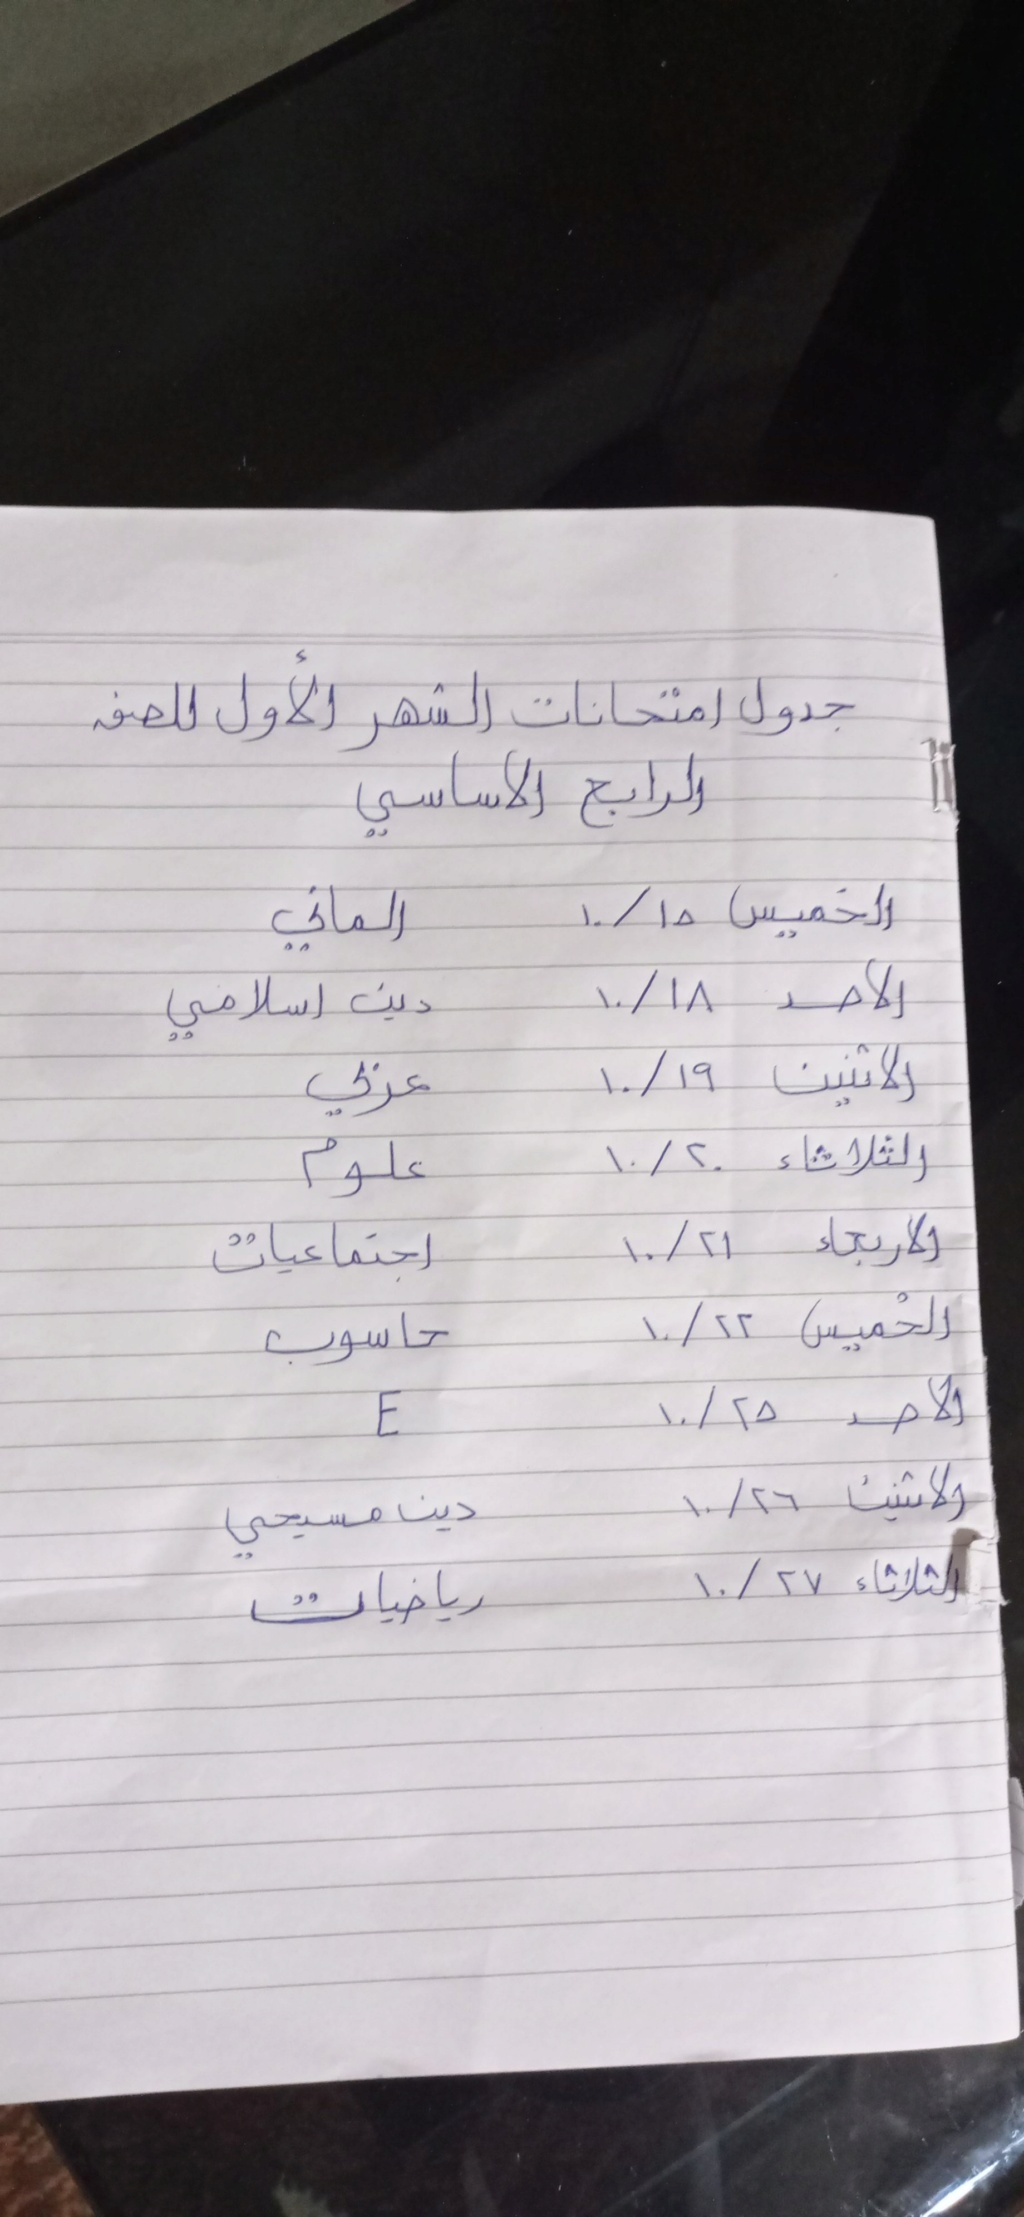 جدول امتحانات الشهر الأول للصف
الرابع الاساسي
الخميس ١٠/١٥ الماني
الأحد ١٠/١٨ دين اسلامي
الاثنين ١٠/١٩ عربي
الثلاثاء ١٠/٢٠ علوم
الاربعاء ١٠/٢١ اجتماعيات
الخميس ١٠/٢٢ حاسوب
الأحد ١٠/٢٥ E
الاثنين ١٠/٢٦ دين مسيحي
الثلاثاء ١٠/٢٧ رياضيات